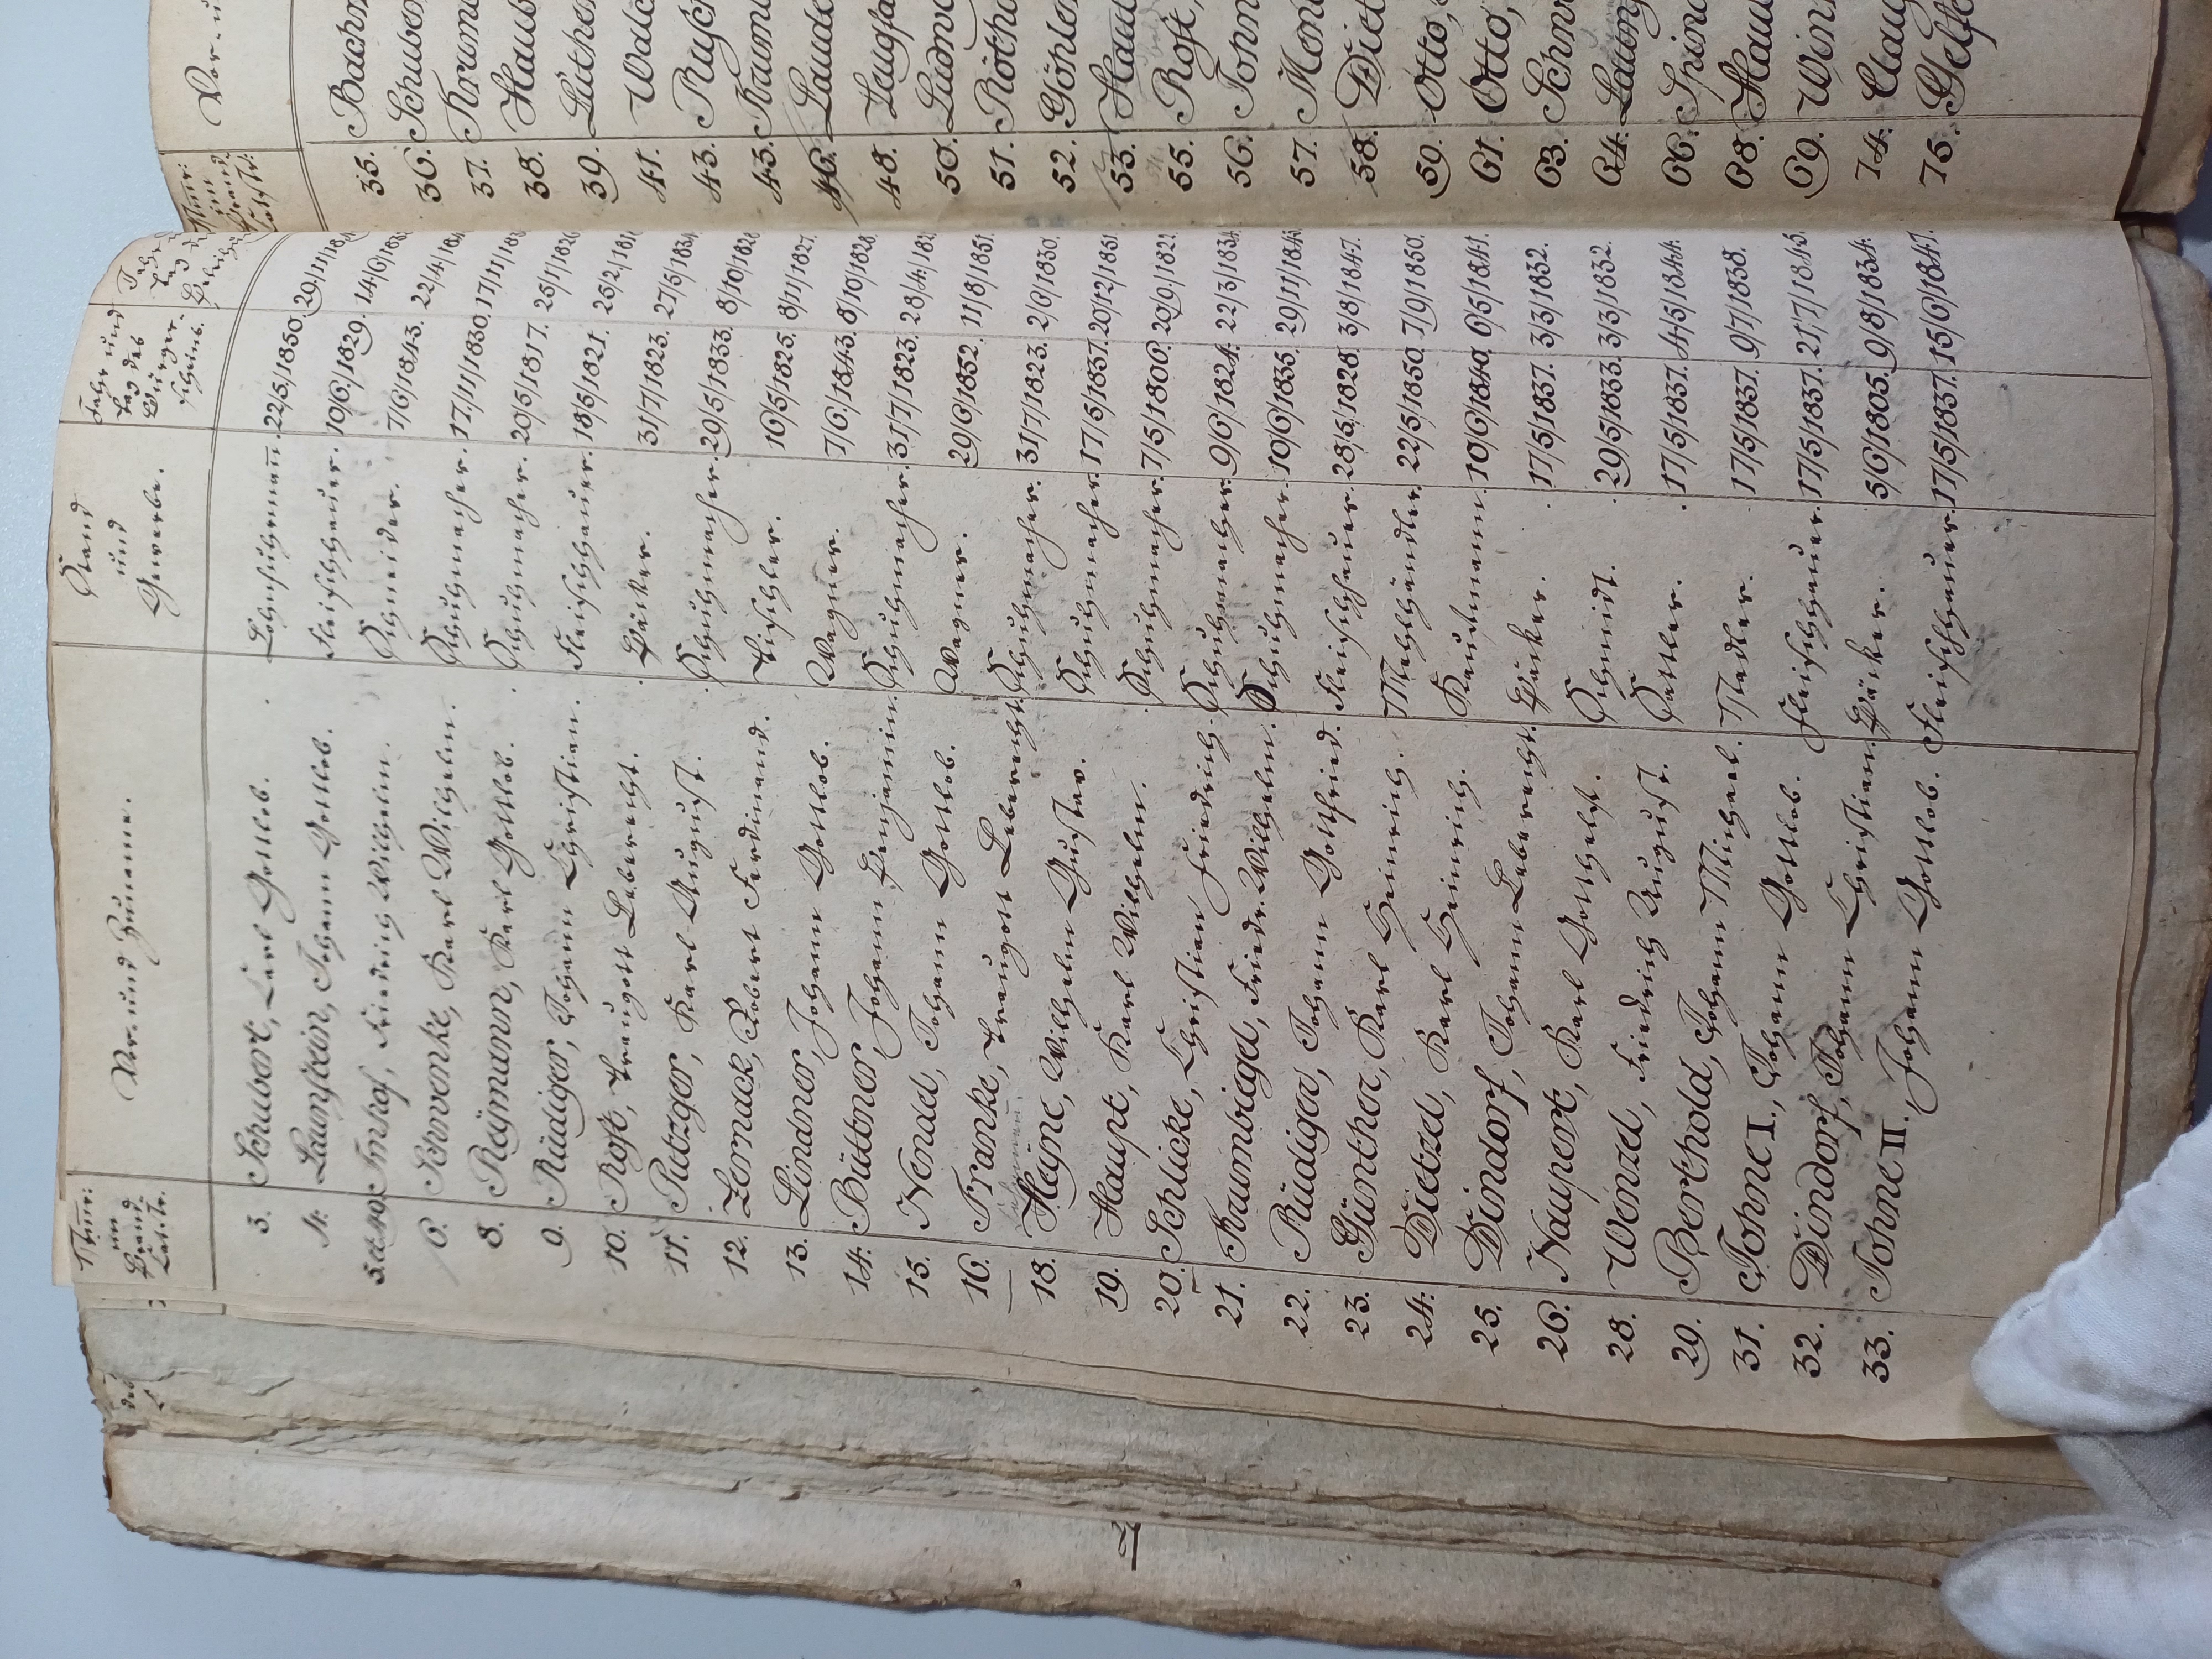 Num̅er: im Brand Catstr.  Vor- und Zuname.  Stand und Gewerbe.  Jahr und Tag des Bürgerscheins.
3. Schubert, Carl Gottlob. Lohnfuhrmann. 22/5/1850. 29/11/18
4. Launstein, Johann Gottlob. Fleischhauer. 10/6/1829. 14/6/183
5 Imhof, Friedrich Wilhelm. Schneider. 7/6/1843. 22/4/184
6. Schwenke, Karl Wilhelm. Schuhmacher. 17/11/1830. 17/11/183
8. Reÿmann, Karl Gottlob. Schuhmacher. 20/5/1817. 25/1/1826
9. Rüdiger, Johann Christian. Fleischhauer. 18/5/1821. 25/2/181
10. Rost, Traugott Leberecht. Bäcker. 31/7/1823. 27/5/1834
11. Rutzger, Karl August. Schuhmacher. 29/5/1833. 8/10/1828
12. Zernack, Robert Ferdinand. Tischler. 16/5/1825. 8/11/1827.
13. Lindner, Johann Gottlob. Wagner. 7/6/1843. 8/10/1828.
14. Büttner, Johann Benjamin. Schuhmacher. 31/7/1823. 28/4/182
15. Nendel, Johann Gottlob. Wagner. 29/6/1852. 11/8/1851.
16. Franke, Traugott Leberecht. Schuhmacher. 31/7/1823. 2/6/1830.
18. Heÿne, Wilhelm Gustav. Schuhmacher. 17/5/1837. 20/12/1851.
19. Haupt, Karl Wilhelm. Schuhmacher. 7/5/1806. 20/9/1822.
20. Schlicke, Christian Friedrich. Schuhmacher. 9/6/1824. 22/3/1834.
21. Kaumbiegel, Friedr. Wilhelm. Schuhmacher. 10/6/1835. 29/11/1843.
22. Rüdiger, Johann Gottfried. Fleischhauer. 28/5/1828. 3/8/1847.
23. Günther, Karl Heinrich. Mehlhändler. 22/5/1850. 7/9/1850.
24. Dietzel, Karl Heinrich. Kaufmann. 10/6/1840. 6/5/1841.
25. Dindorf, Johann Leberecht. Bäcker. 17/5/1837. 3/3/1832.
26. Naupert, Karl Gotthelf. Schmidt. 29/5/1833. 3/3/1832.
28. Wenzel, Friedrich August. Sattler. 17/5/1837. 4/5/1844.
29. Berthold, Johann Michael. Nadler. 17/5/1837. 9/7/1838.
31. Johne I., Johann Gottlob. Fleischhauer. 17/5/1837. 21/7/1845.
32. Dindorf, Johann Christian. Bäcker. 5/6/1805. 9/8/1834.
33. Johne II. Johann Gottlob. Fleischhauer. 17/5/1837. 15/9/1847.
Vor- u
35. Bachm
36. Schuber
37. Krum
38. Haub
39. Luther
41. Walc
43. Rusch
45. Kraum
46. Laude
48. Zeugfa
50. Ludw
51. Röth
52. Göhler
53. Hau
55. Rost,
56. John
57. Men
58. Diet
59. Otto,
61. Otto,
63. Schn
64. Laun
66. Spin
68. Hau
69. Win
74. Clau
75. Self